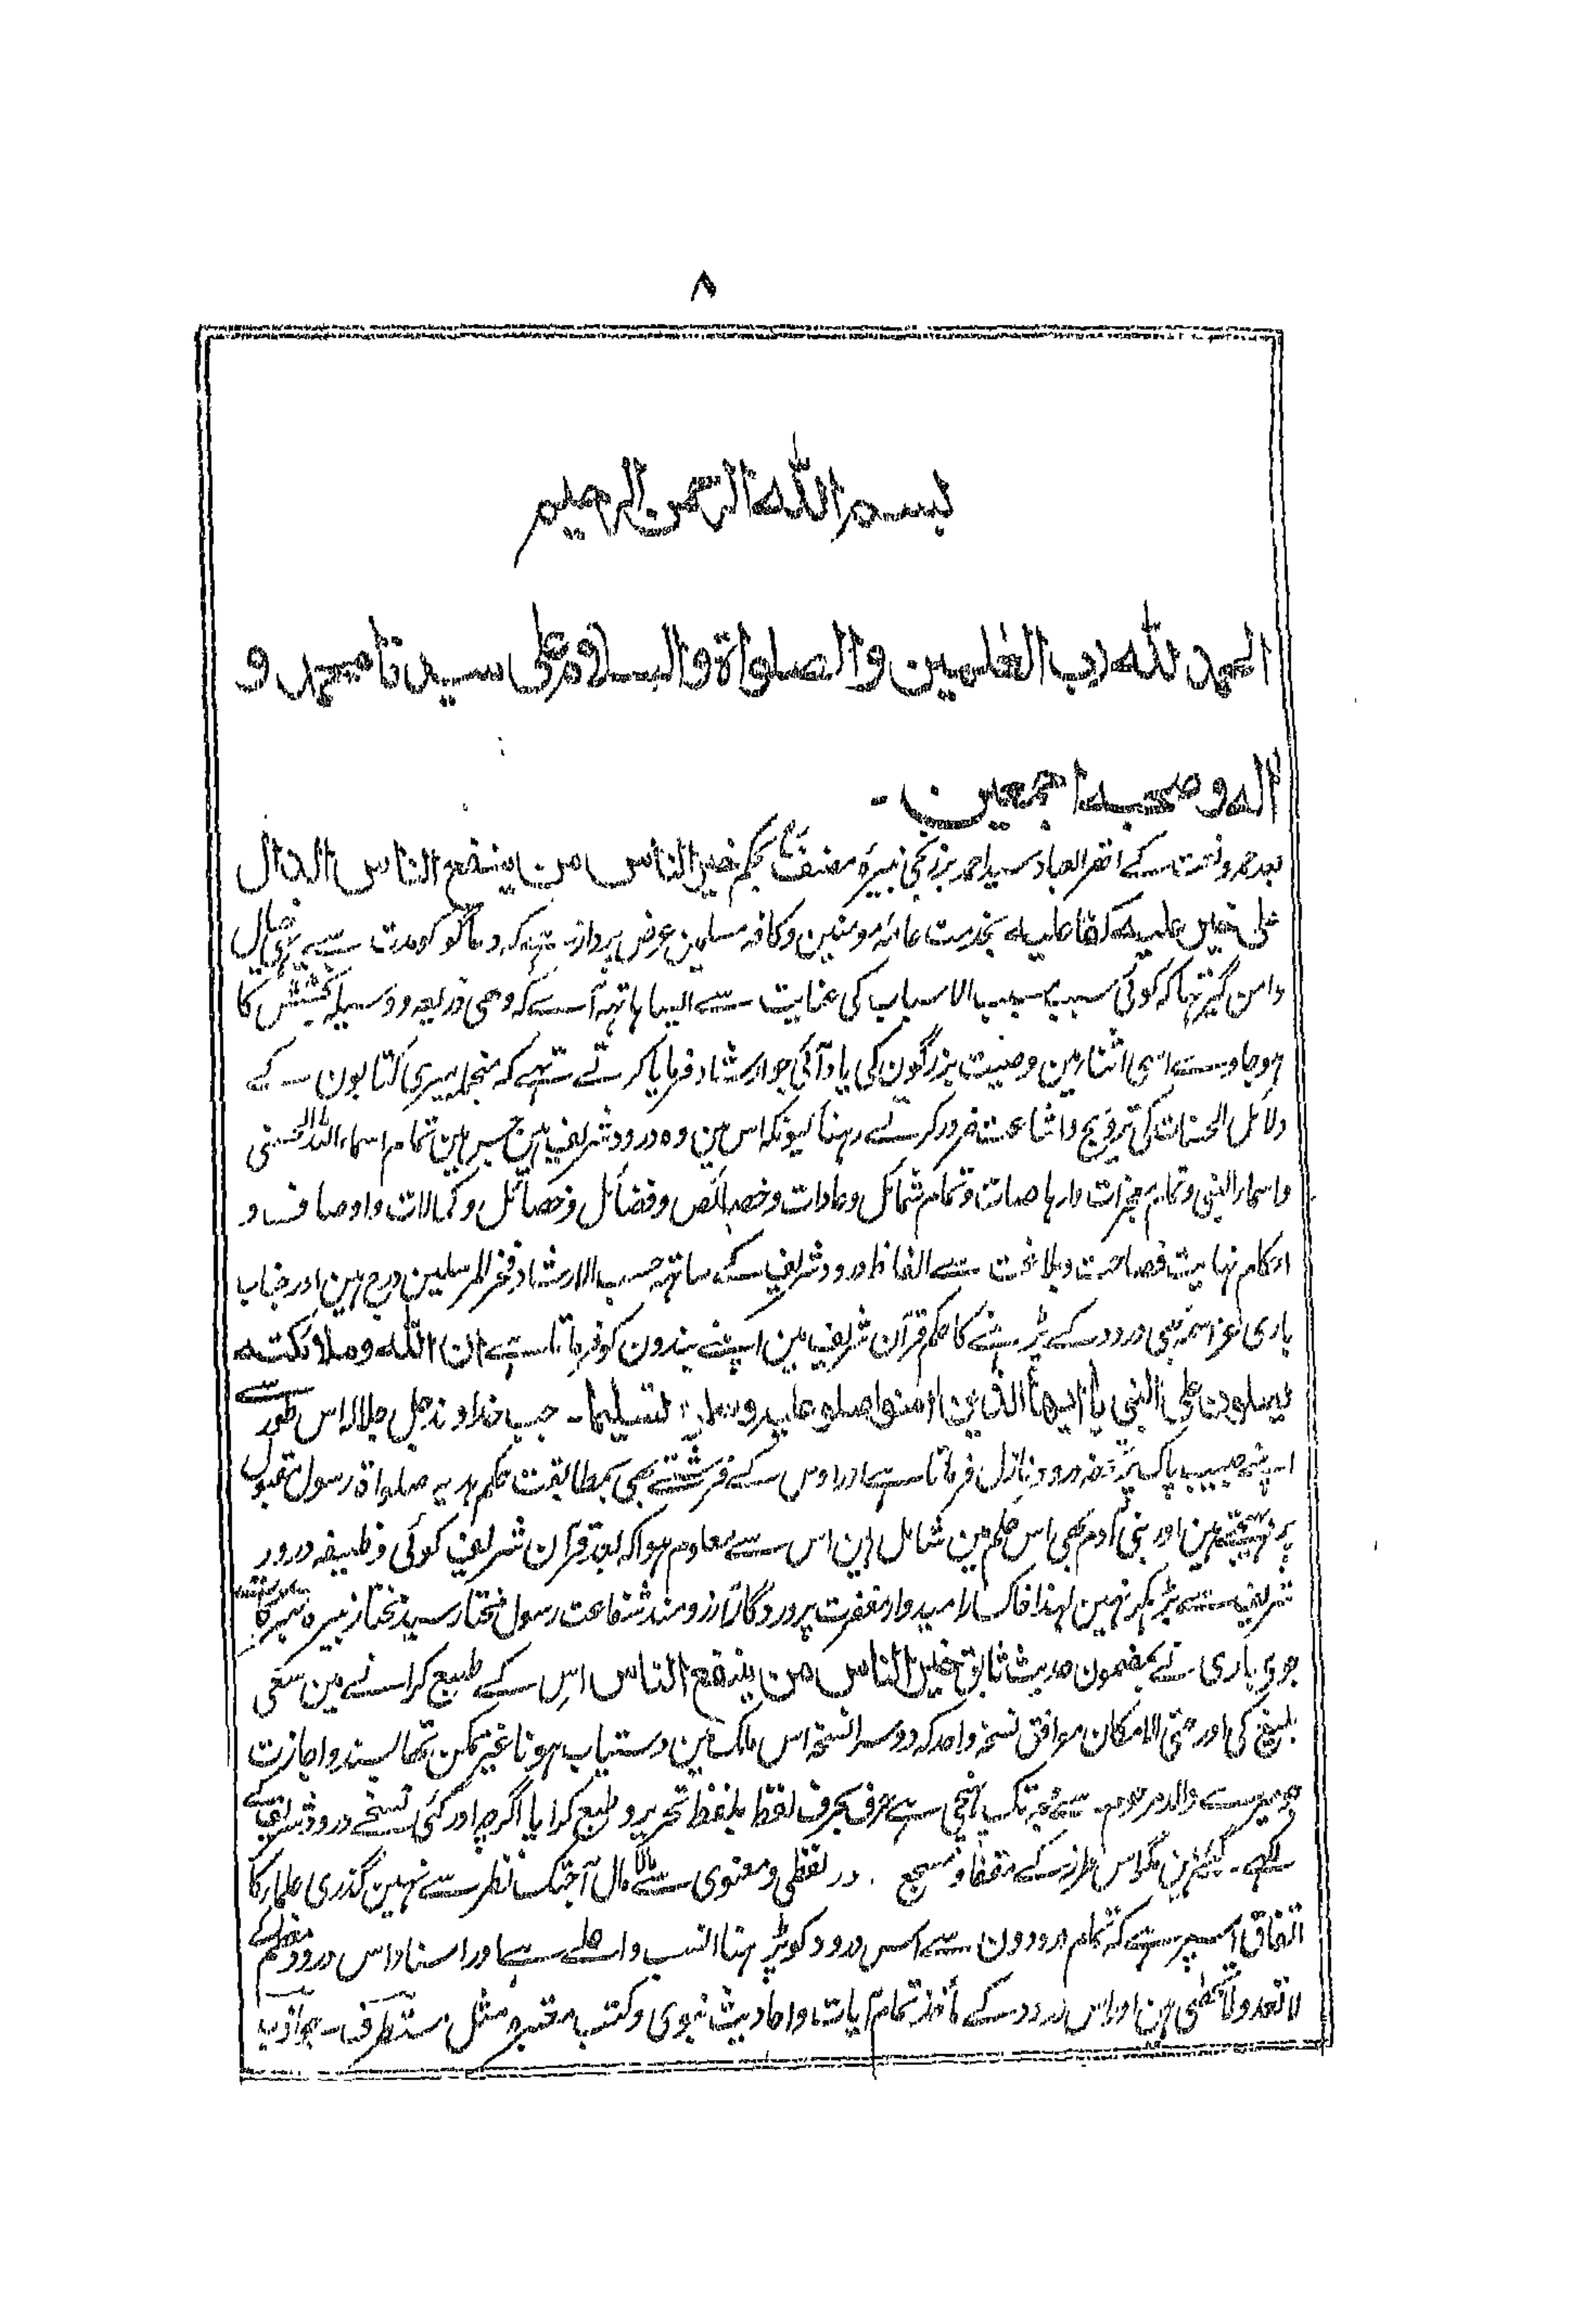 ۸
بسم الله الرحمن الرحيم
الحمد لله رب العٰلمین والصلواة والسلام علی سیدنا محمد و
اله وصحبه اجمعین۔
بعد حمد و نعت کے احقر العباد سید احمد برزنجی نبیرۂ مصنف بحکم خیر الناس من ینفع الناس الدال
علی خیر علیه کفاعلیه بخدمت عامۂ مومنین وکافہ مسلمین عرض پرداز ہے کہ دعاگو کو مدت سے یہی خیال
دامن گیر تہا کہ کوئی سبب مسبب الاسباب کی عنایت سے ایسا ہاتہہ آے کہ وهی ذریعہ و وسیلہ بخشش کا
ہوجاوے اسی اثنا مین وصیت بزرگون کی یاد آئی جو ارشاد فرمایا کرتے تہے کہ منجملہ میری کتابون کے
دلائل الحسنات کی ترویج واشاعت ضرور کرتے رہنا کیونکہ اس مین وہ درود شریف ہین جسمین تمام اسماء اللہ الحسنی
واسماء النبی وتمام معجزات وارہاصات وتمام شمائل وعادات وخصائص وفضائل وخصائل وکمالات واوصاف و
احکام نہایت فصاحت وبلاغت سے الفاظ درود شریف کے ساتہہ حسب الارشاد فخر المرسلین درج ہین اور جناب
باری عز اسمہ بہی درود کے پڑہنے کا حکم قرآن شریف مین اپنے بندون کو فرماتا ہے ان الله وملاؤكته
یصلون علی النبی یا ایها الذین امنوا صلو علیه وسلموا تسلیما۔ جب خداوند جل جلالہ اس طور سے
اپنے حبیب پاک پر تحفہ درود نازل فرماتا ہے اور اوس کے فرشتے بھی بمطابقت حکم ہدیہ صلواة رسول مقبول
پر بہیجتے ہین اور بنی آدم بھی اس حکم مین شامل ہین اس سے معلوم ہوا کہ بعد قرآن شریف کوئی وظیفہ درود
شریف سے بڑہکر نہین لہذا خاکسار امیدوار مغفرت پروردگار آرزومند شفاعت رسول مختار سید مختار نبیرہ
جو یاری نے بمضمون حدیث خیر الناس من ینفع الناس اس کے طبع کرانے مین سعی
بلیغ کی اور حتی الامکان موافق نسخہ واحد کہ دوسرا نسخہ اس ملک مین دستیاب ہونا غیر ممکن تھا بسند و اجازت
جو میرے والد مرحوم سے مجہ تک پہنچی ہے حرف بحرف لفظ بلفظ تحریر و طبع کرایا اگرچہ اور کئی نسخے درود شریف کے
لکہے گئے ہین مگر اس طرز کے مقفا و مسجع در لفظی و معنوی سے مالامال آجتک نظر سے نہین گذری علما کا
اتفاق اسپر ہے کہ تمام درودون سے اس درود کو پڑہنا انسب واعلے ہے اور اسناد اس درود معظم کے
لا تعد ولا تحصٰی ہین اور اس درود کے ماخذ تمام آیات واحادیث نبوی وکتب معتبرہ مثل مستطرف